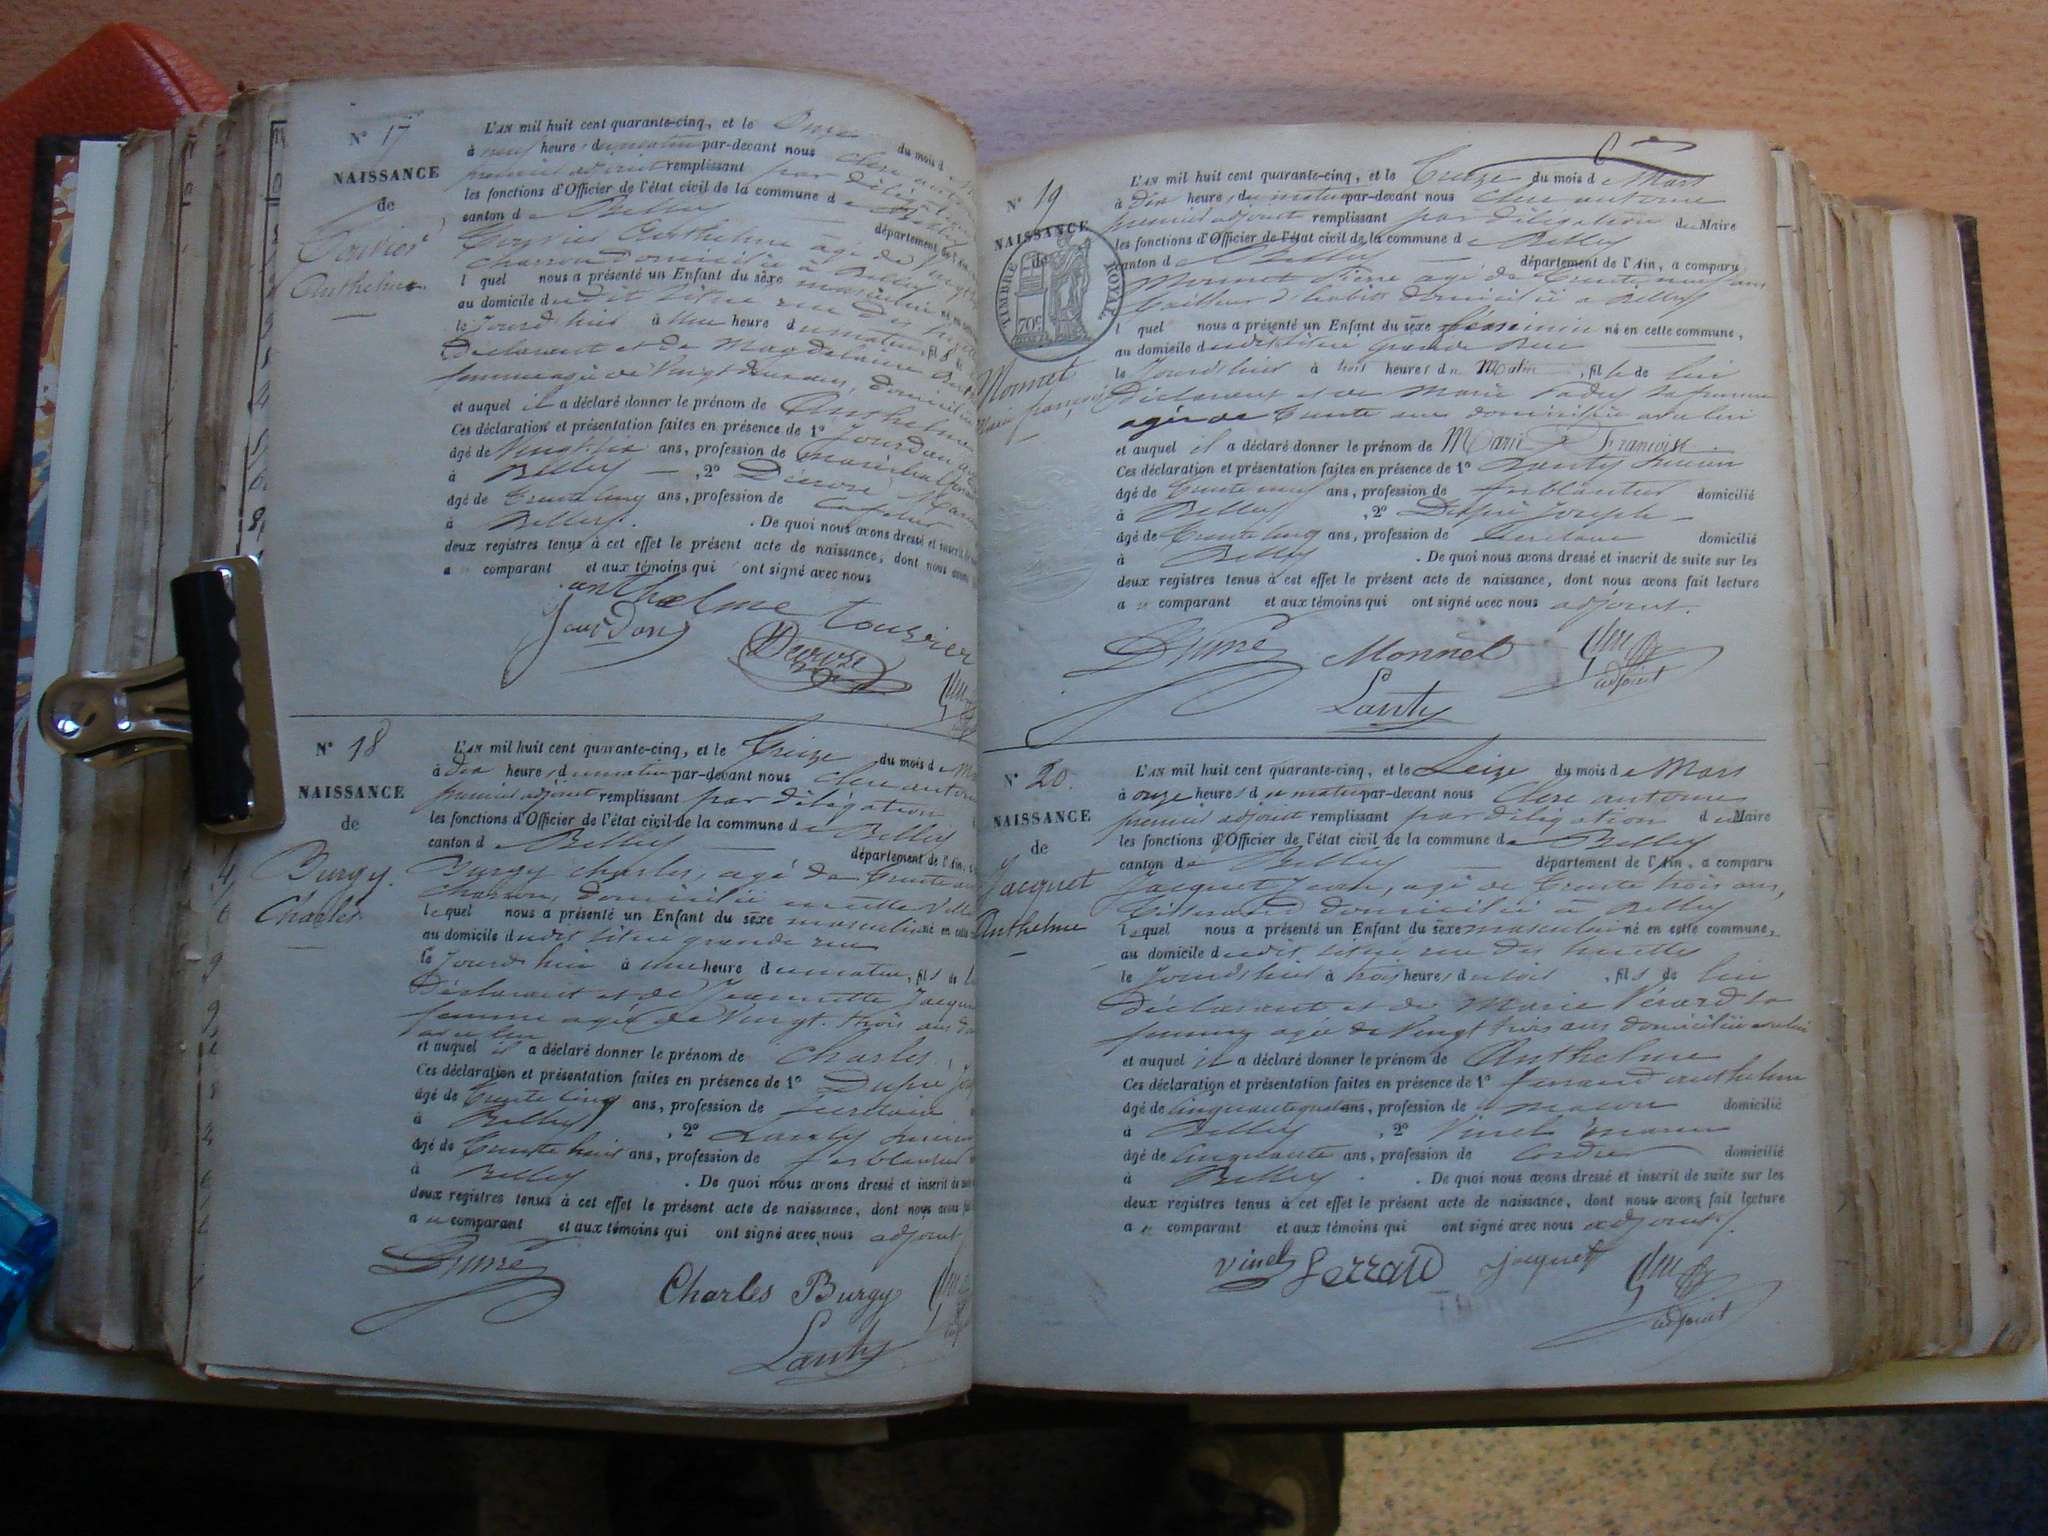 N° 17
NAISSANCE
de
Anthelme
L'AN mil huit cent quarante-cinq, et le Onze du mois d
à neuf heures du matin par-devant nous Clerc
premier adjoint remplissant par délégation
les fonctions d'Officier de l'état civil de la commune d e Belley
canton d e Belley département de
Anthelme agé de
charron domicilié à Belley
l quel nous a présenté un Enfant du sexe masculin né en
au domicile dudit situé rue des
le Jourd'hui à Une heure du matin, fils
Déclarant et de Magdelaine
femme agée de Vingt deux ans, domiciliée
et auquel il a déclaré donner le prénom de Anthelme
Ces déclaration et présentation faites en présence de 1° Jourdan
âgé de Vingt six ans, profession de maréchal
à Belley, 2°
âgé de trente cinq ans, profession de
à Belley. De quoi nous avons dressé et inscrit de
deux registres tenus à cet effet le présent acte de naissance, dont nous avons
a u comparant et aux témoins qui ont signé avec nous
anthelme
Jourdan
N° 18
NAISSANCE
de
Burgy
Charles
L'AN mil huit cent quarante-cinq, et le Treize du mois de
à dix heures du matin par-devant nous Clerc antoine
premier adjoint remplissant par délégation
les fonctions d'Officier de l'état civil de la commune d e Belley
canton d e Belley département de l'Ain,
Burgy charles, agé de trente
charron, domicilié en cette Ville
lequel nous a présenté un Enfant du sexe masculin né en cette
au domicile dudit situé grande rue
le Jourd'hui à une heure du matin, fils de
Déclarant et de Jeannette
femme agée de Vingt-trois ans
avec lui
et auquel il a déclaré donner le prénom de Charles
Ces déclaration et présentation faites en présence de 1° Dupré
âgé de trente cinq ans, profession de
à Belley, 2° Lanty
âgé de trente huit ans, profession de ferblantier
à Belley. De quoi nous avons dressé et inscrit de
deux registres tenus à cet effet le présent acte de naissance, dont nous avons
a u comparant et aux témoins qui ont signé avec nous adjoint
Dupré
Charles Burgy
Lanty
N° 19
NAISSANCE
de
TIMBRE ROYAL
70c
Monnet
L'AN mil huit cent quarante-cinq, et le Treize du mois d e Mars
à dix heures du matin par-devant nous Clerc antoine
premier adjoint remplissant par délégation du Maire
les fonctions d'Officier de l'état civil de la commune d e Belley
canton d e Belley département de l'Ain, a comparu
Monnet agé de trente neuf ans
tailleur d'habits domicilié à Belley
l quel nous a présenté un Enfant du sexe féminin né en cette commune,
au domicile dudit situé grande Rue
le Jourd'hui à trois heures du Matin, fille de lui
Déclarant et de Marie sa femme
agée de trente ans domiciliée avec lui
et auquel il a déclaré donner le prénom de Marie Françoise
Ces déclaration et présentation faites en présence de 1° Lanty
âgé de trente neuf ans, profession de ferblantier domicilié
à Belley, 2° Dupré Joseph
âgé de trente cinq ans, profession de domicilié
à Belley. De quoi nous avons dressé et inscrit de suite sur les
deux registres tenus à cet effet le présent acte de naissance, dont nous avons fait lecture
a u comparant et aux témoins qui ont signé avec nous adjoint.
Dupré Monnet
Lanty
adjoint
N° 20.
NAISSANCE
de
Jacquet
Anthelme
L'AN mil huit cent quarante-cinq, et le Seize du mois d e Mars
à onze heures du matin par-devant nous Clerc antoine
premier adjoint remplissant par délégation du Maire
les fonctions d'Officier de l'état civil de la commune d e Belley
canton d e Belley département de l'Ain, a comparu
Jacquet Jean, agé de trente trois ans,
Tisserand domicilié à Belley
lequel nous a présenté un Enfant du sexe masculin né en cette commune,
au domicile dudit, situé rue des
le Jourd'hui à trois heures du, fils de lui
déclarant et de Marie Vérard sa
femme agée de Vingt trois ans domiciliée avec lui
et auquel il a déclaré donner le prénom de Anthelme
Ces déclaration et présentation faites en présence de 1° ferrand anthelme
âgé de cinquante quatre ans, profession de maçon domicilié
à Belley, 2° Vinel
âgé de cinquante ans, profession de cordier domicilié
à Belley. De quoi nous avons dressé et inscrit de suite sur les
deux registres tenus à cet effet le présent acte de naissance, dont nous avons fait lecture
a u comparant et aux témoins qui ont signé avec nous adjoint.
vinel ferrand jacquet
adjoint